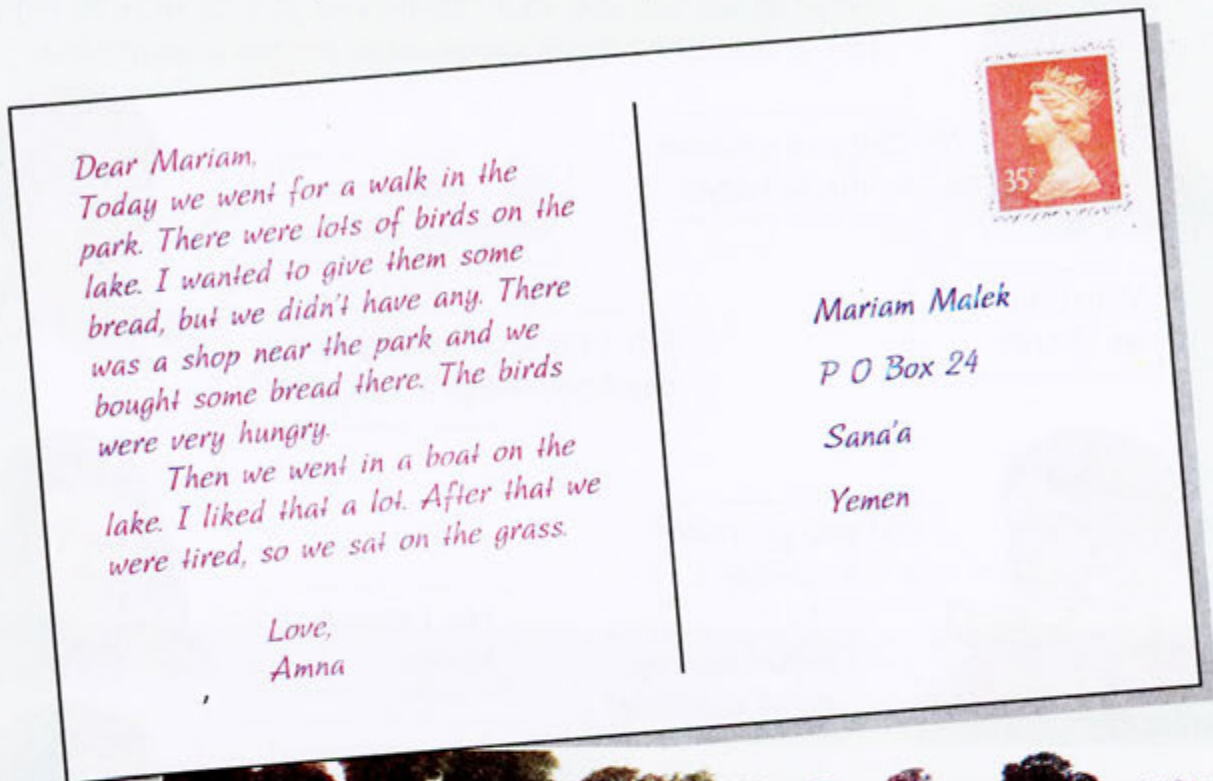 Dear Mariam,
Today we went for a walk in the
park. There were lots of birds on the
lake. I wanted to give them some
bread, but we didn't have any. There
was a shop near the park and we
bought some bread there. The birds
were very hungry.
Then we went in a boat on the
lake. I liked that a lot. After that we
were tired, so we sat on the grass.
Love,
Amna
35P
Mariam Malek
P O Box 24
Sana'a
Yemen